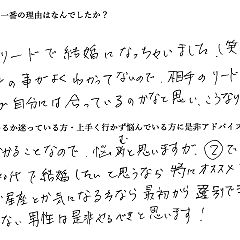 一番の理由はなんでしたか？
リードで結婚になっちゃいました！（笑
の事がよくわかってないので、相手のリード
が自分には合っているのかなと思い、こうなり
るか迷っている方・上手く行かず悩んでいる方に是非アドバイ
かることなので、悩むと思いますが、②で
代で結婚したいと思うなら特にオススメ
星座とか気になる方なら最初から選別でき
ない男性は是非やるべきと思います！